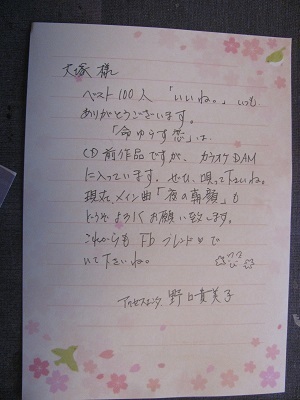 大塚 様
ベスト100人 「いいね。」いつも
ありがとうございます。
「命ゆらす恋」は、
CD前作品ですが、カラオケDAM
に入っています。ぜひ、唄って下さいね。
現在、メイン曲「夜の朝顔」も
どうぞよろしくお願い致します。
これからも Fb フレンドで
いて下さいね。
野口貴美子